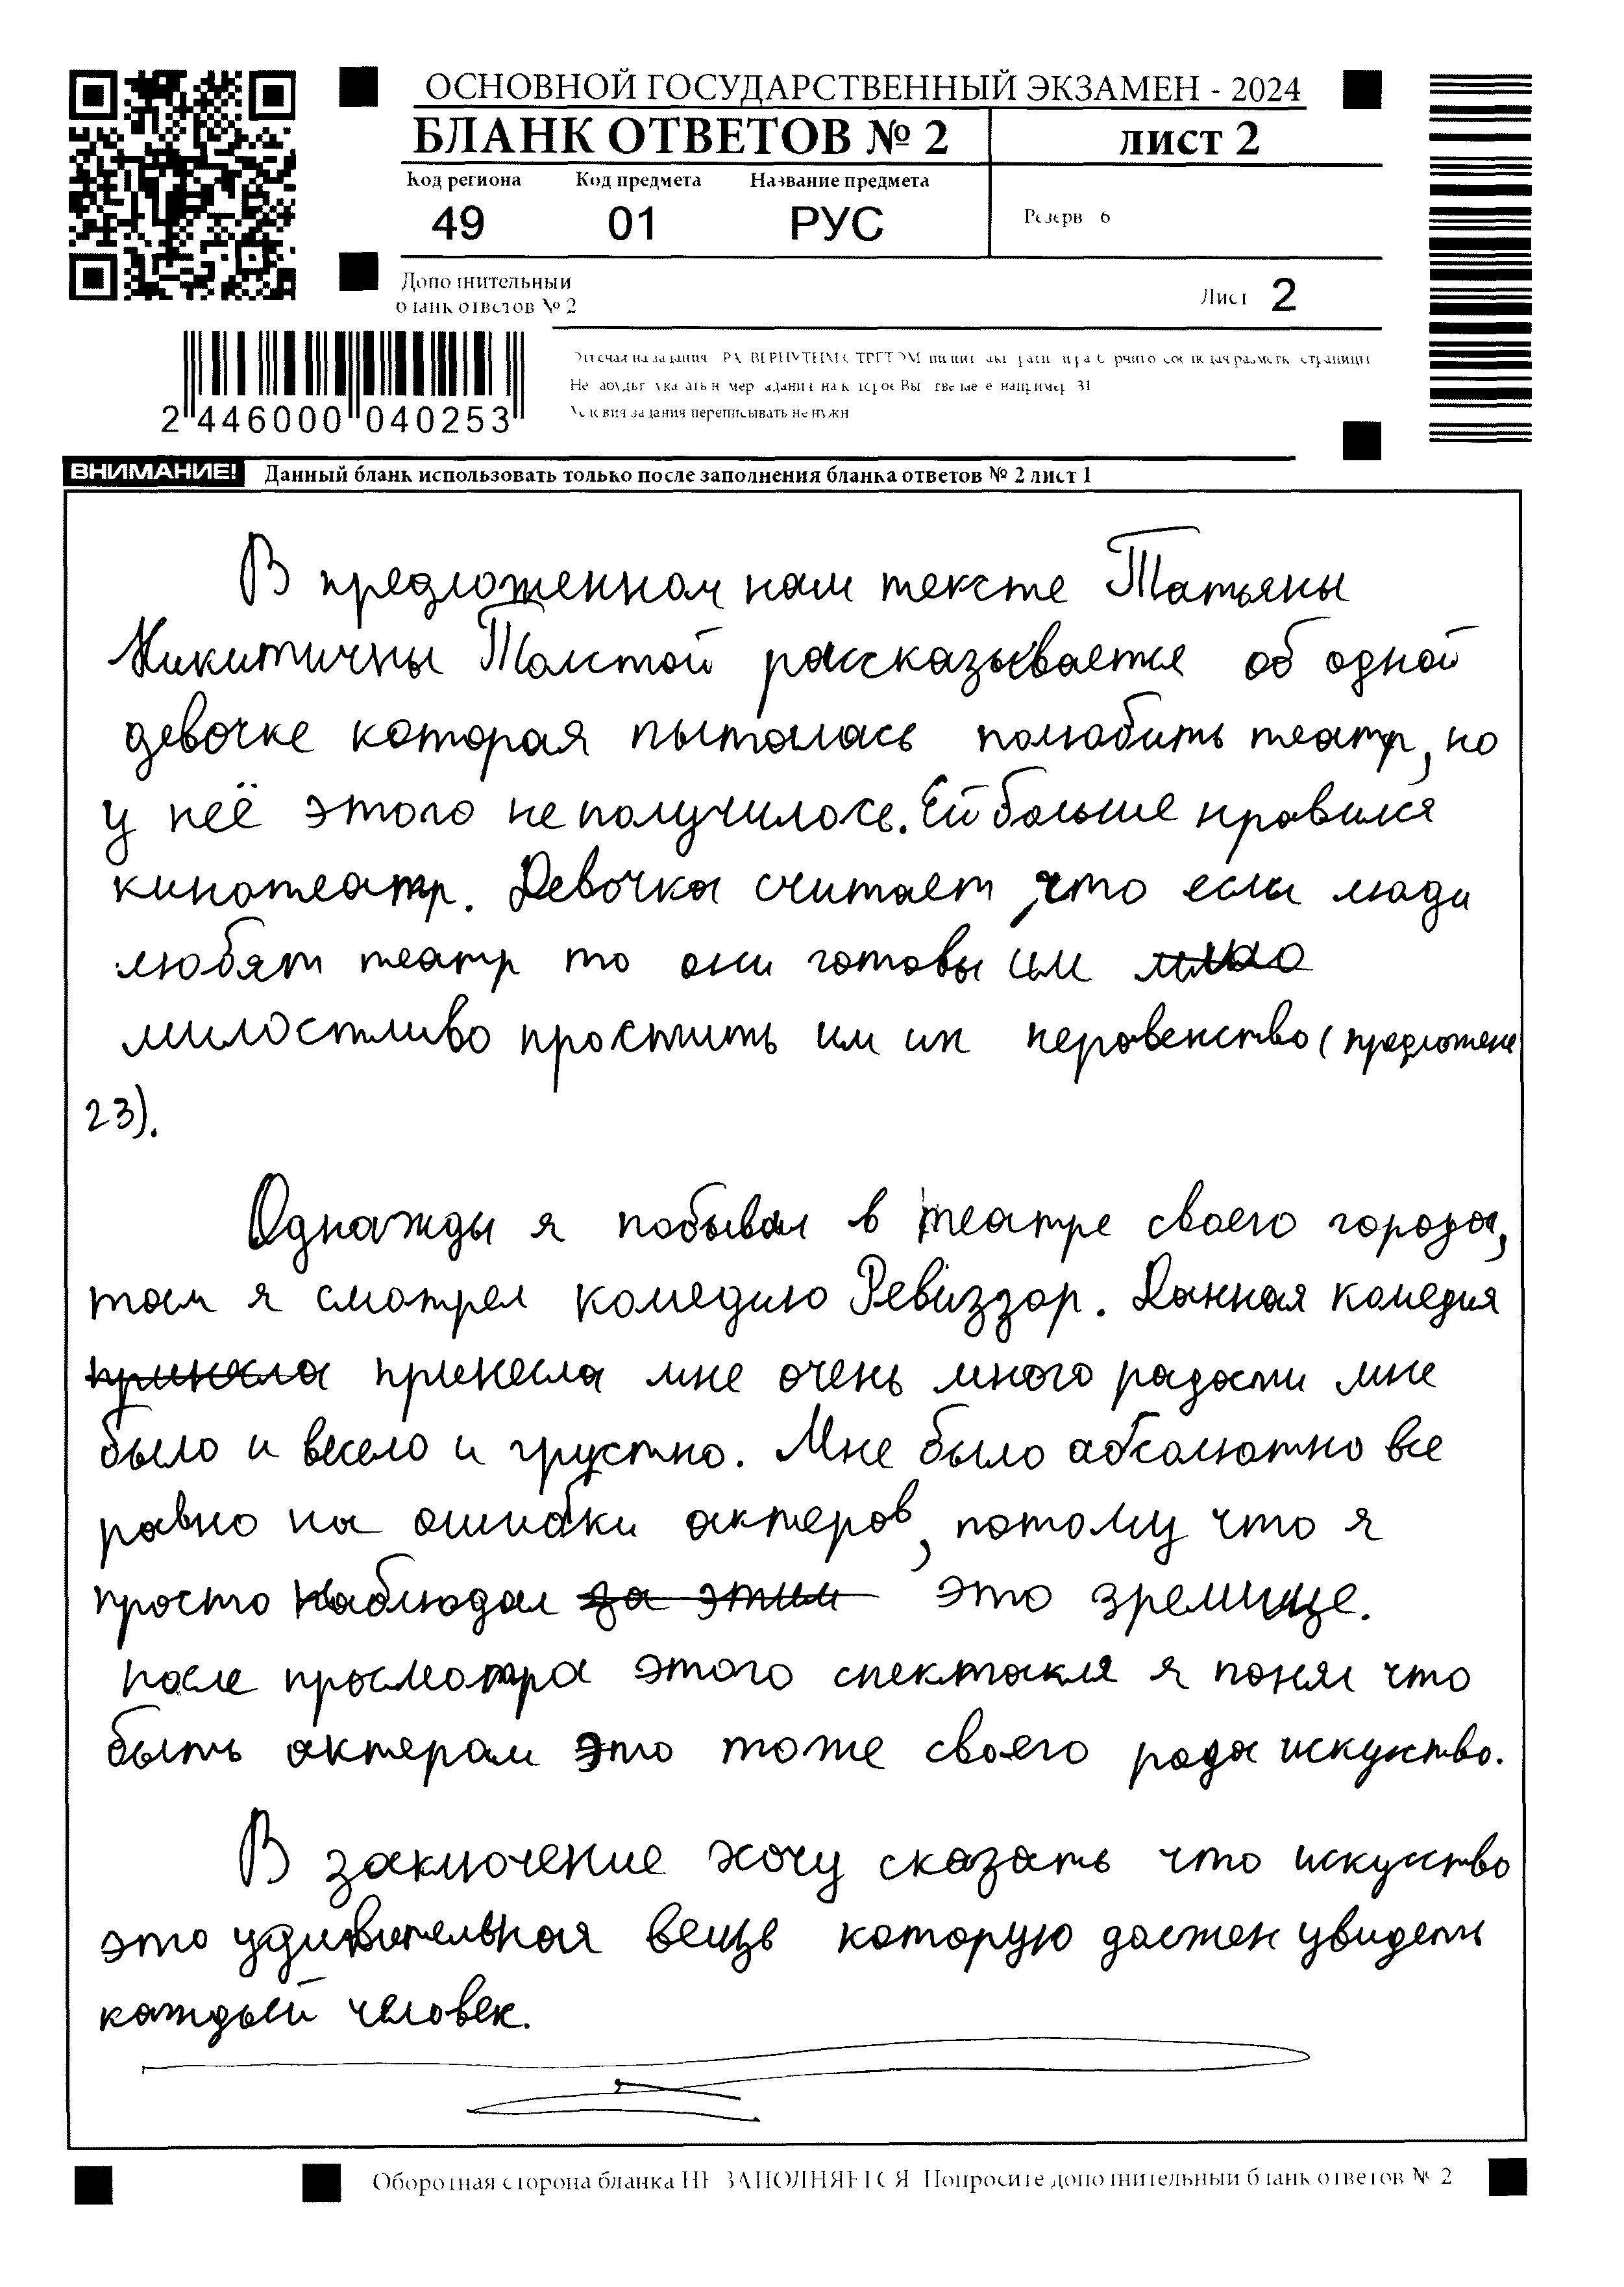 ОСНОВНОЙ ГОСУДАРСТВЕННЫЙ ЭКЗАМЕН - 2024
БЛАНК ОТВЕТОВ № 2 лист 2
Код региона Код предмета Название предмета
49 01 РУС Резерв 6
Дополнительный
бланк ответов № 2
Лист 2
2 446000 040253
Условия задания переписывать не нужн
ВНИМАНИЕ! Данный бланк использовать только после заполнения бланка ответов № 2 лист 1
В предложенном нам тексте Татьяны
Никитичны Толстой рассказывается об одной
девочке которая пыталась полюбить театр, но
у неё этого не получилось. Ей больше нравился
кинотеатр. Девочка считает, что если люди
любят театр то они готовы им
милостливо простить им их неравенство (предложене
23).
Однажды я побывал в театре своего города,
там я смотрел комедию Ревиззор. Данная комедия
принесла мне очень много радости мне
было и весело и грустно. Мне было абсолютно все
равно на ошибки актеров, потому что я
просто наблюдал за этим это зрелище.
после просмотра этого спектакля я понял что
быть актерам это тоже своего рода искуство.
В заключение хочу сказать что искусство
это удивительная вещь которую должен увидеть
каждый человек.
Оборотная сторона бланка НЕ ЗАПОЛНЯЕТСЯ Попросите дополнительный бланк ответов № 2